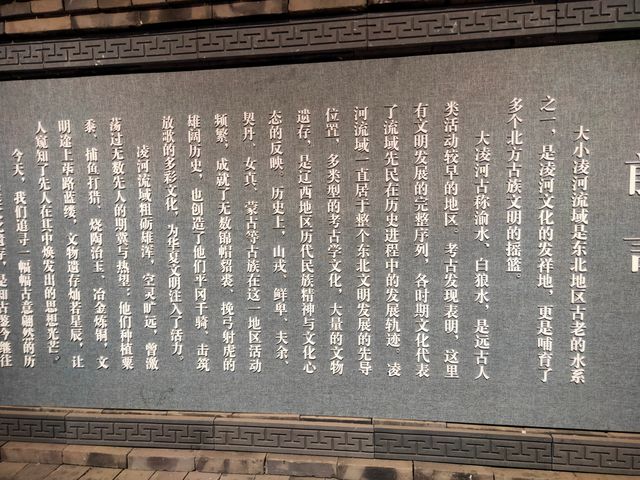 前言
大小凌河流域是东北地区古老的水系
之一，是凌河文化的发祥地，更是哺育了
多个北方古族文明的摇篮。
大凌河古称渝水、白狼水，是远古人
类活动较早的地区。考古发现表明，这里
有文明发展的完整序列，各时期文化代表
了流域先民在历史进程中的发展轨迹。凌
河流域一直居于整个东北文明发展的先导
位置，多类型的考古学文化，大量的文物
遗存，是辽西地区历代民族精神与文化心
态的反映。历史上，山戎、鲜卑、夫余、
契丹、女真、蒙古等古族在这一地区活动
频繁，成就了无数锦帽貂裘、挽弓射虎的
雄阔历史，也创造了他们平冈千骑、击筑
放歌的多彩文化，为华夏文明注入了活力。
凌河流域粗砺雄浑，空灵旷远，曾激
荡过无数先人的期冀与热望。他们种植粟
黍，捕鱼打猎，烧陶治玉，冶金炼铜，文
明途上筚路蓝缕，文物遗存灿若星辰，让
人窥知了先人在其中焕发出的思想光芒。
今天，我们追寻一幅幅古意翩然的历